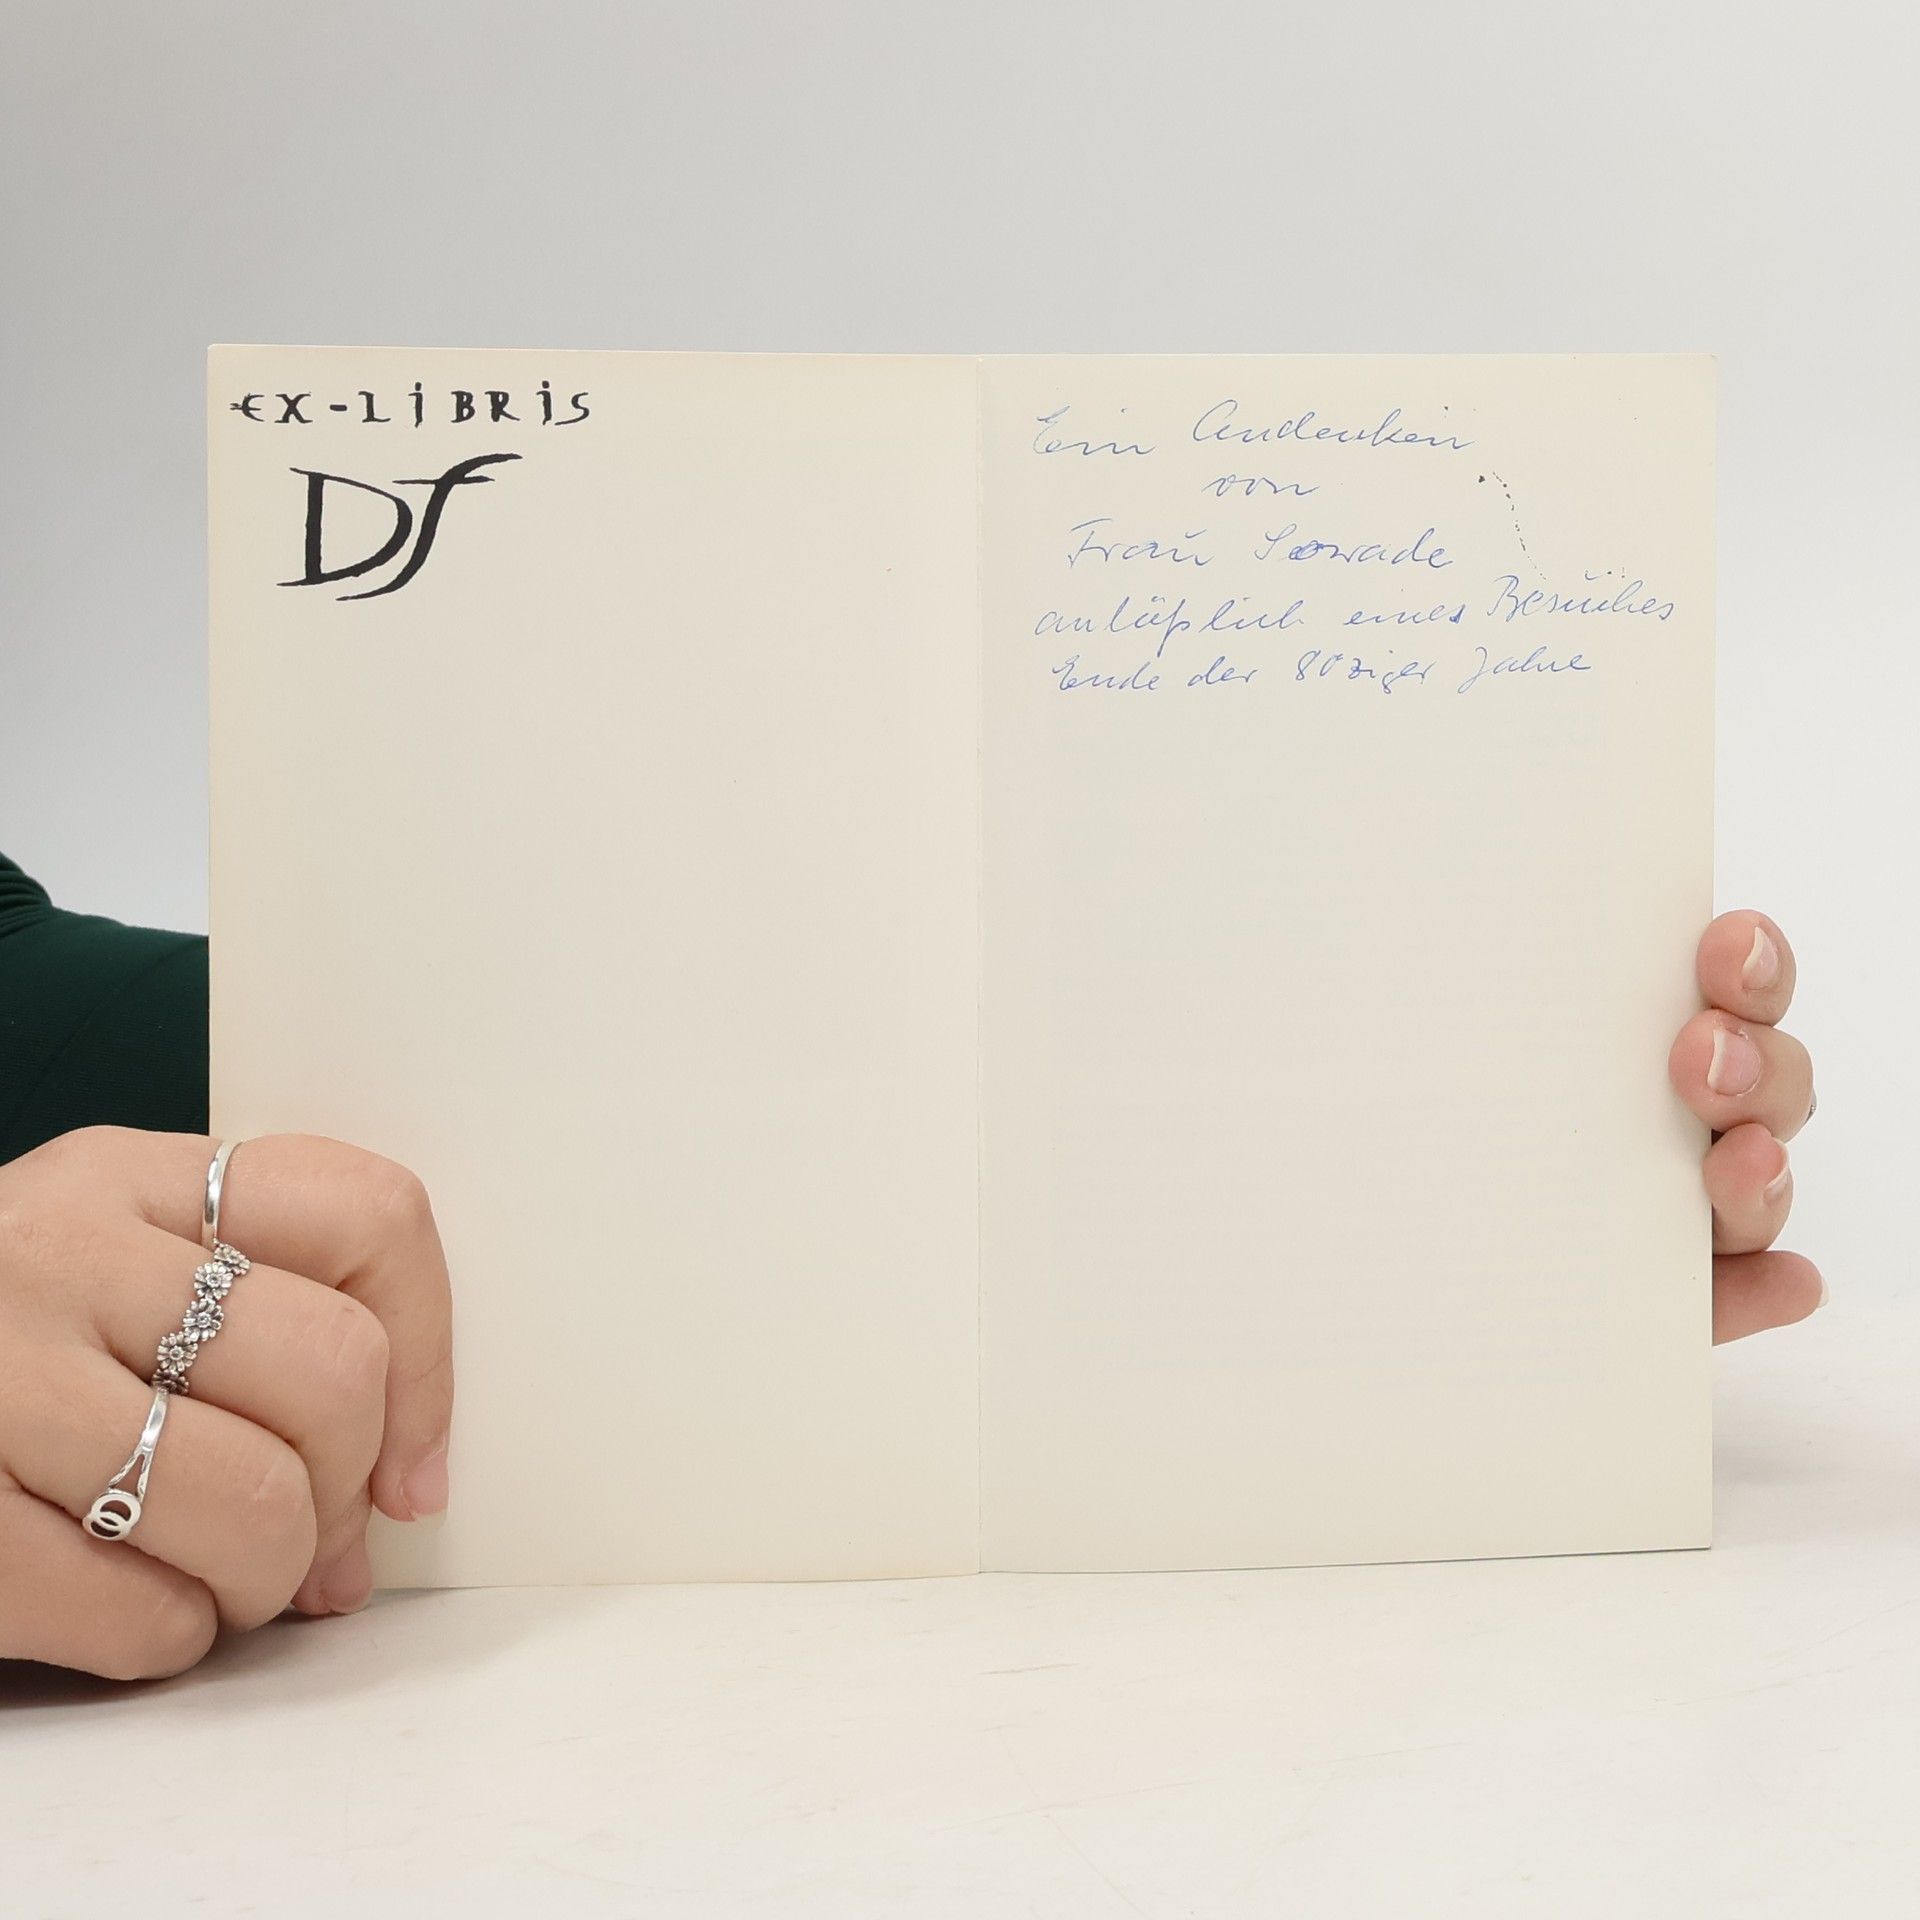 EX-LiBRiS
Df
Ein Andenken
von
Frau Sowade
anläßlich eines Besuches
Ende der 80ziger Jahre